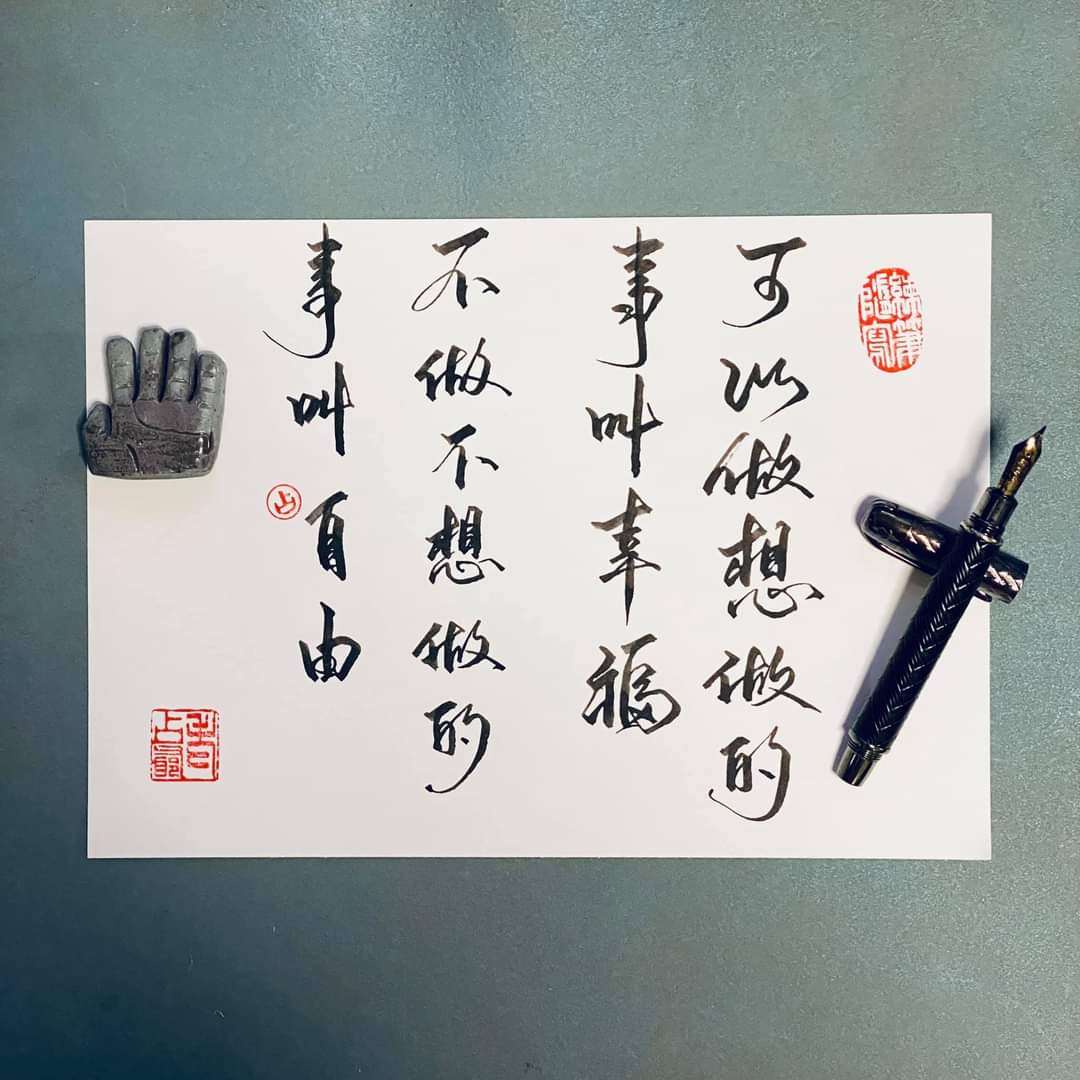 可以做想做的
事叫幸福
不做不想做的
事叫自由